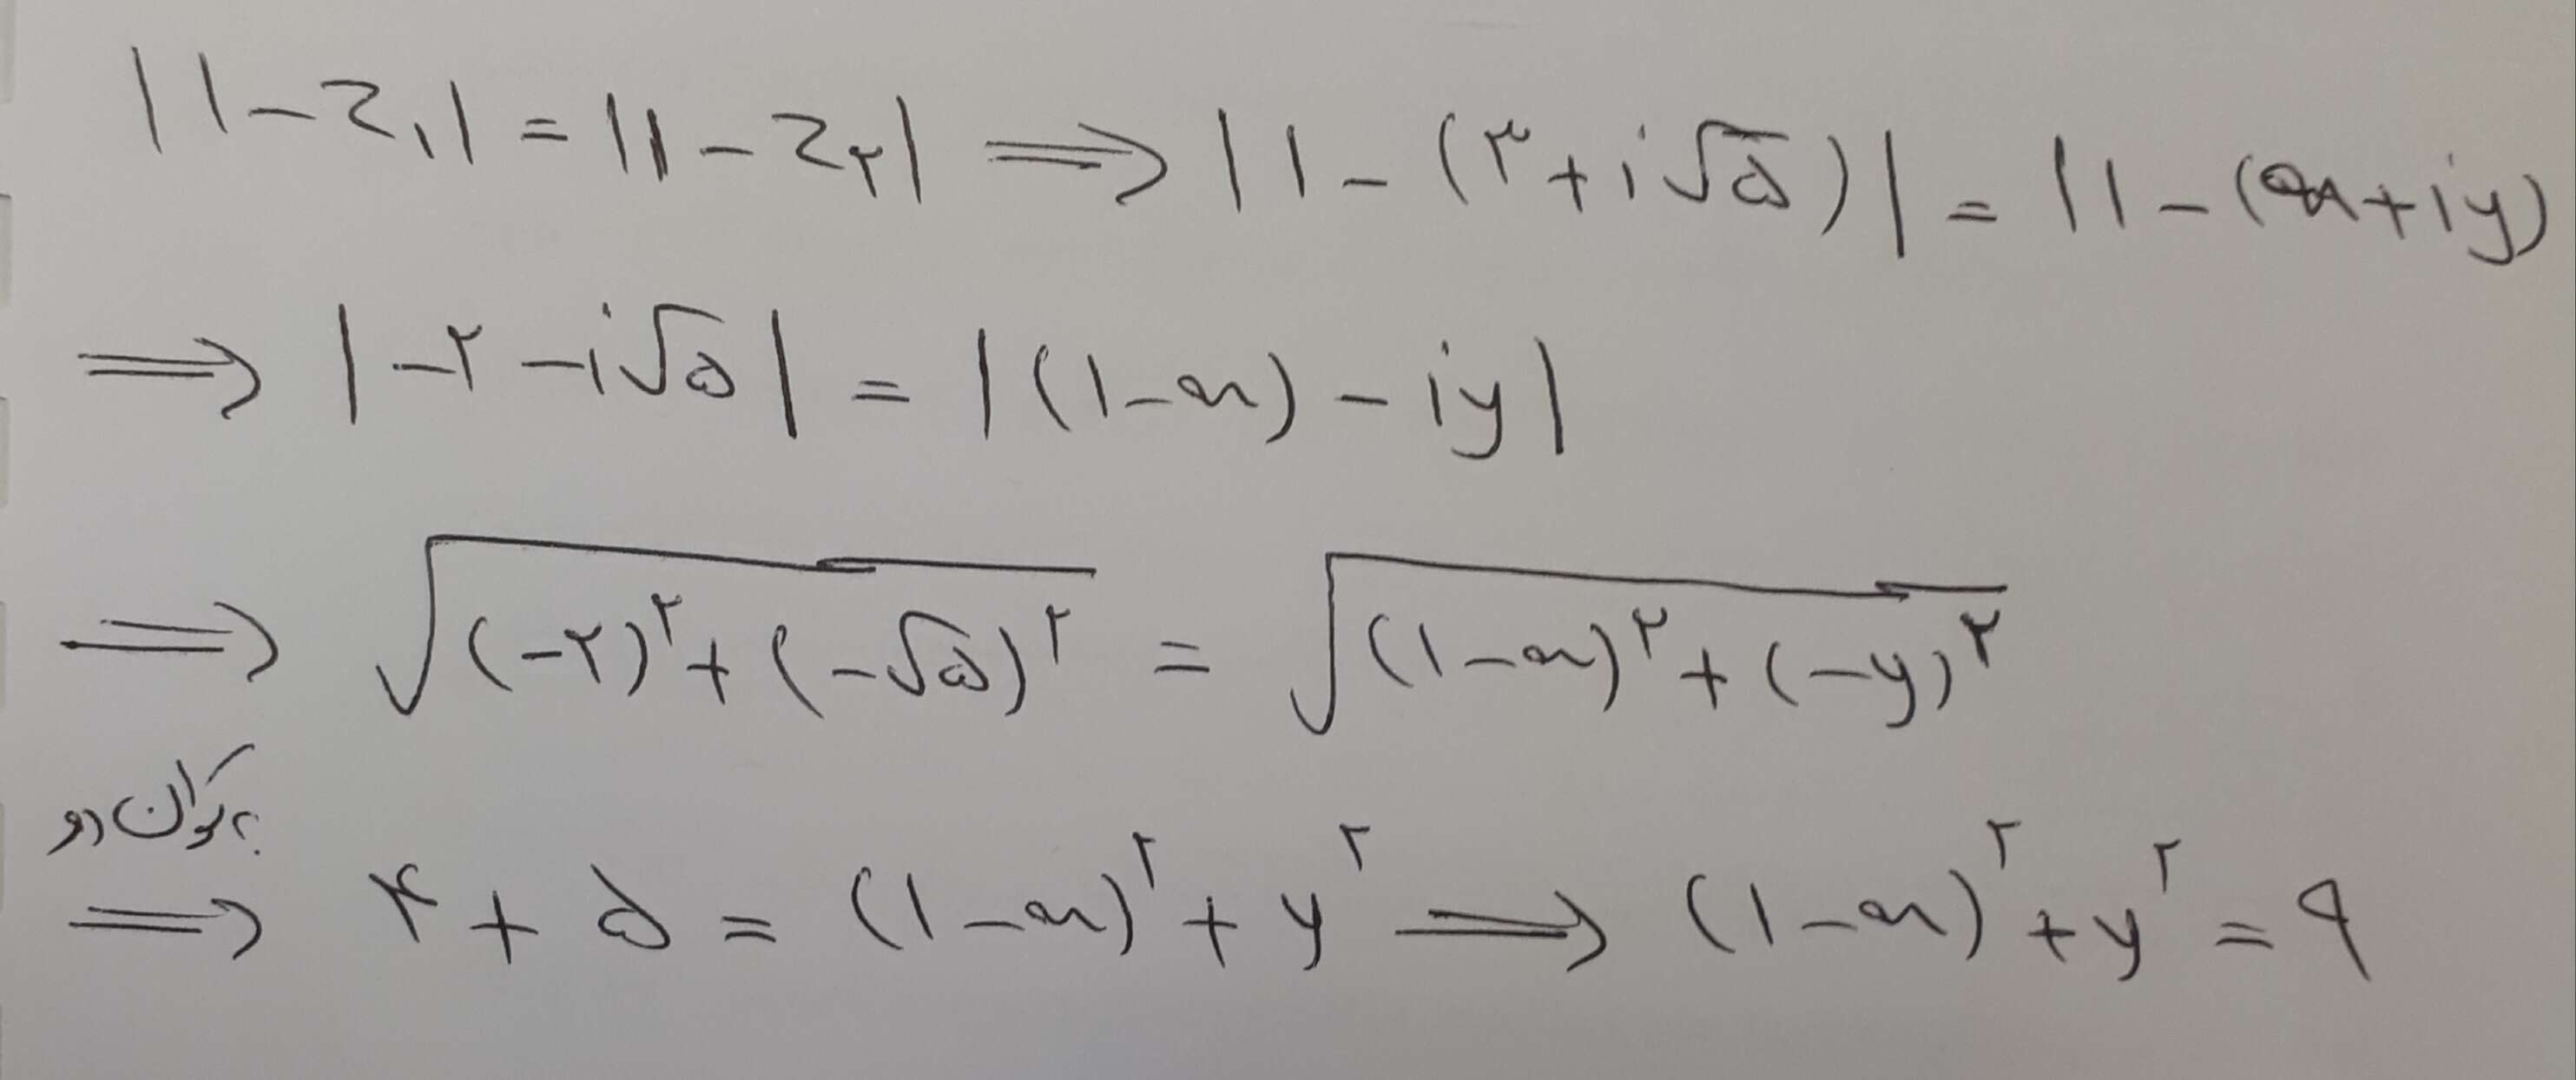 |1-z₁| = |1-z₂| ⟹ |1-(۳+i√۵)| = |1-(x+iy)
⟹ |-۲-i√۵| = |(1-x)-iy|
⟹ √((-۲)^۲+(-√۵)^۲) = √((1-x)^۲+(-y)^۲)
بتوان دو
⟹ ۴+۵ = (1-x)^۲+y^۲ ⟹ (1-x)^۲+y^۲ = ۹